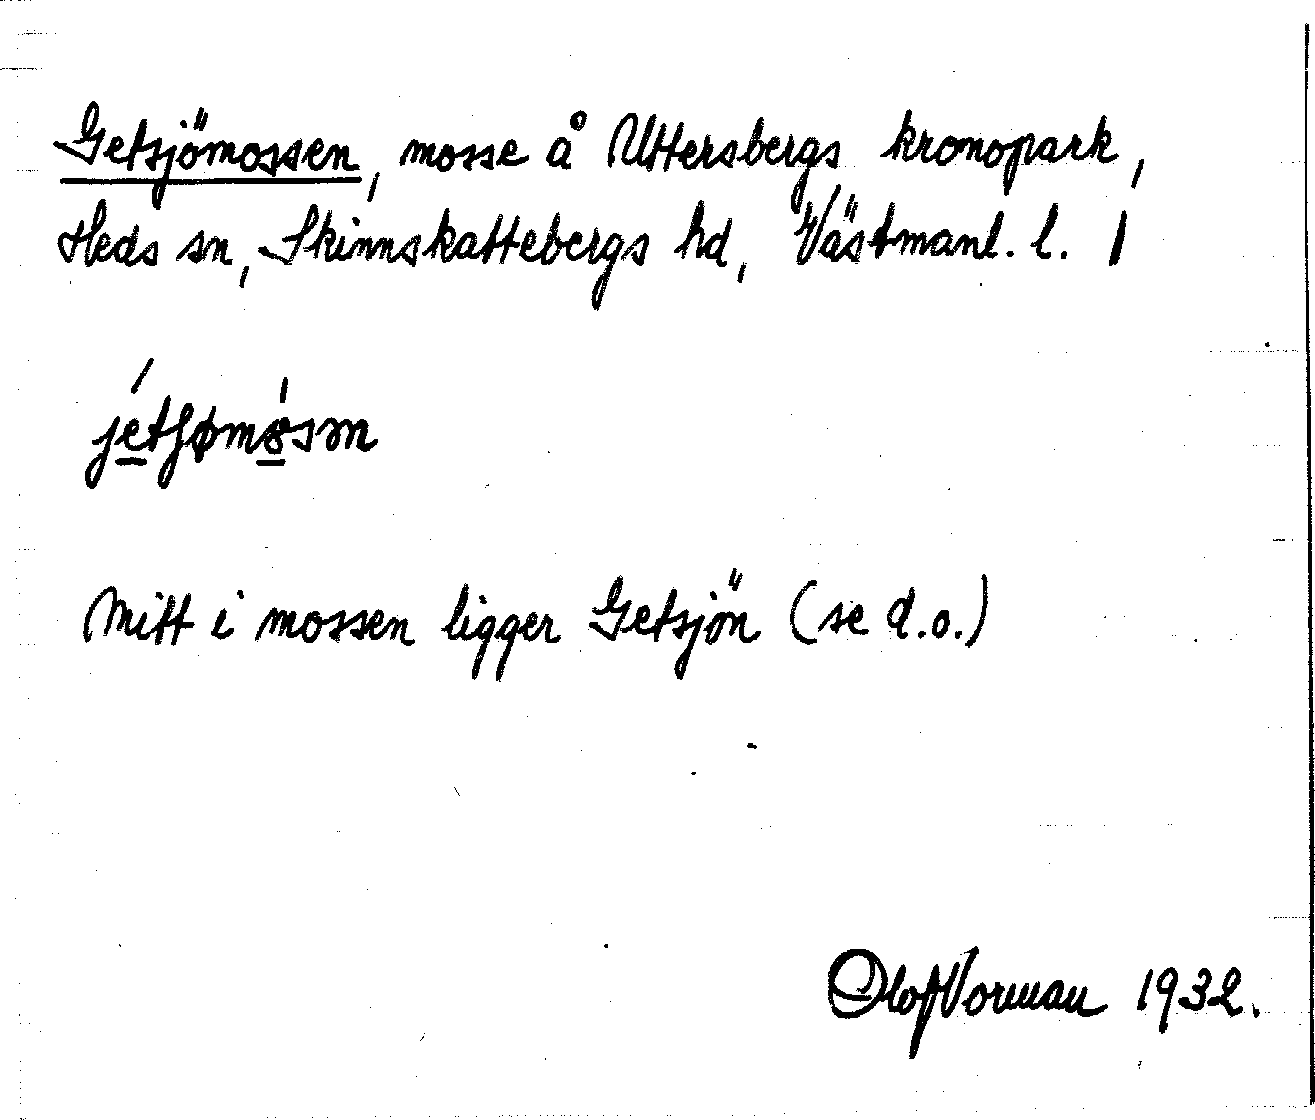 Getsjömossen, mosse å Uttersbergs kronopark,
Heds sn, Skinnskattebergs hd, Västmanl. l.
Mitt i mossen ligger Getsjön (se d.o.)
Olof Vorman 1932.